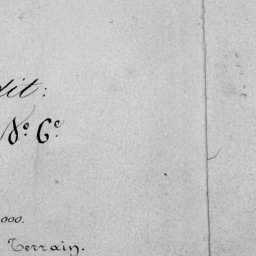 dit:
Nº 6º
000.
Terrain.